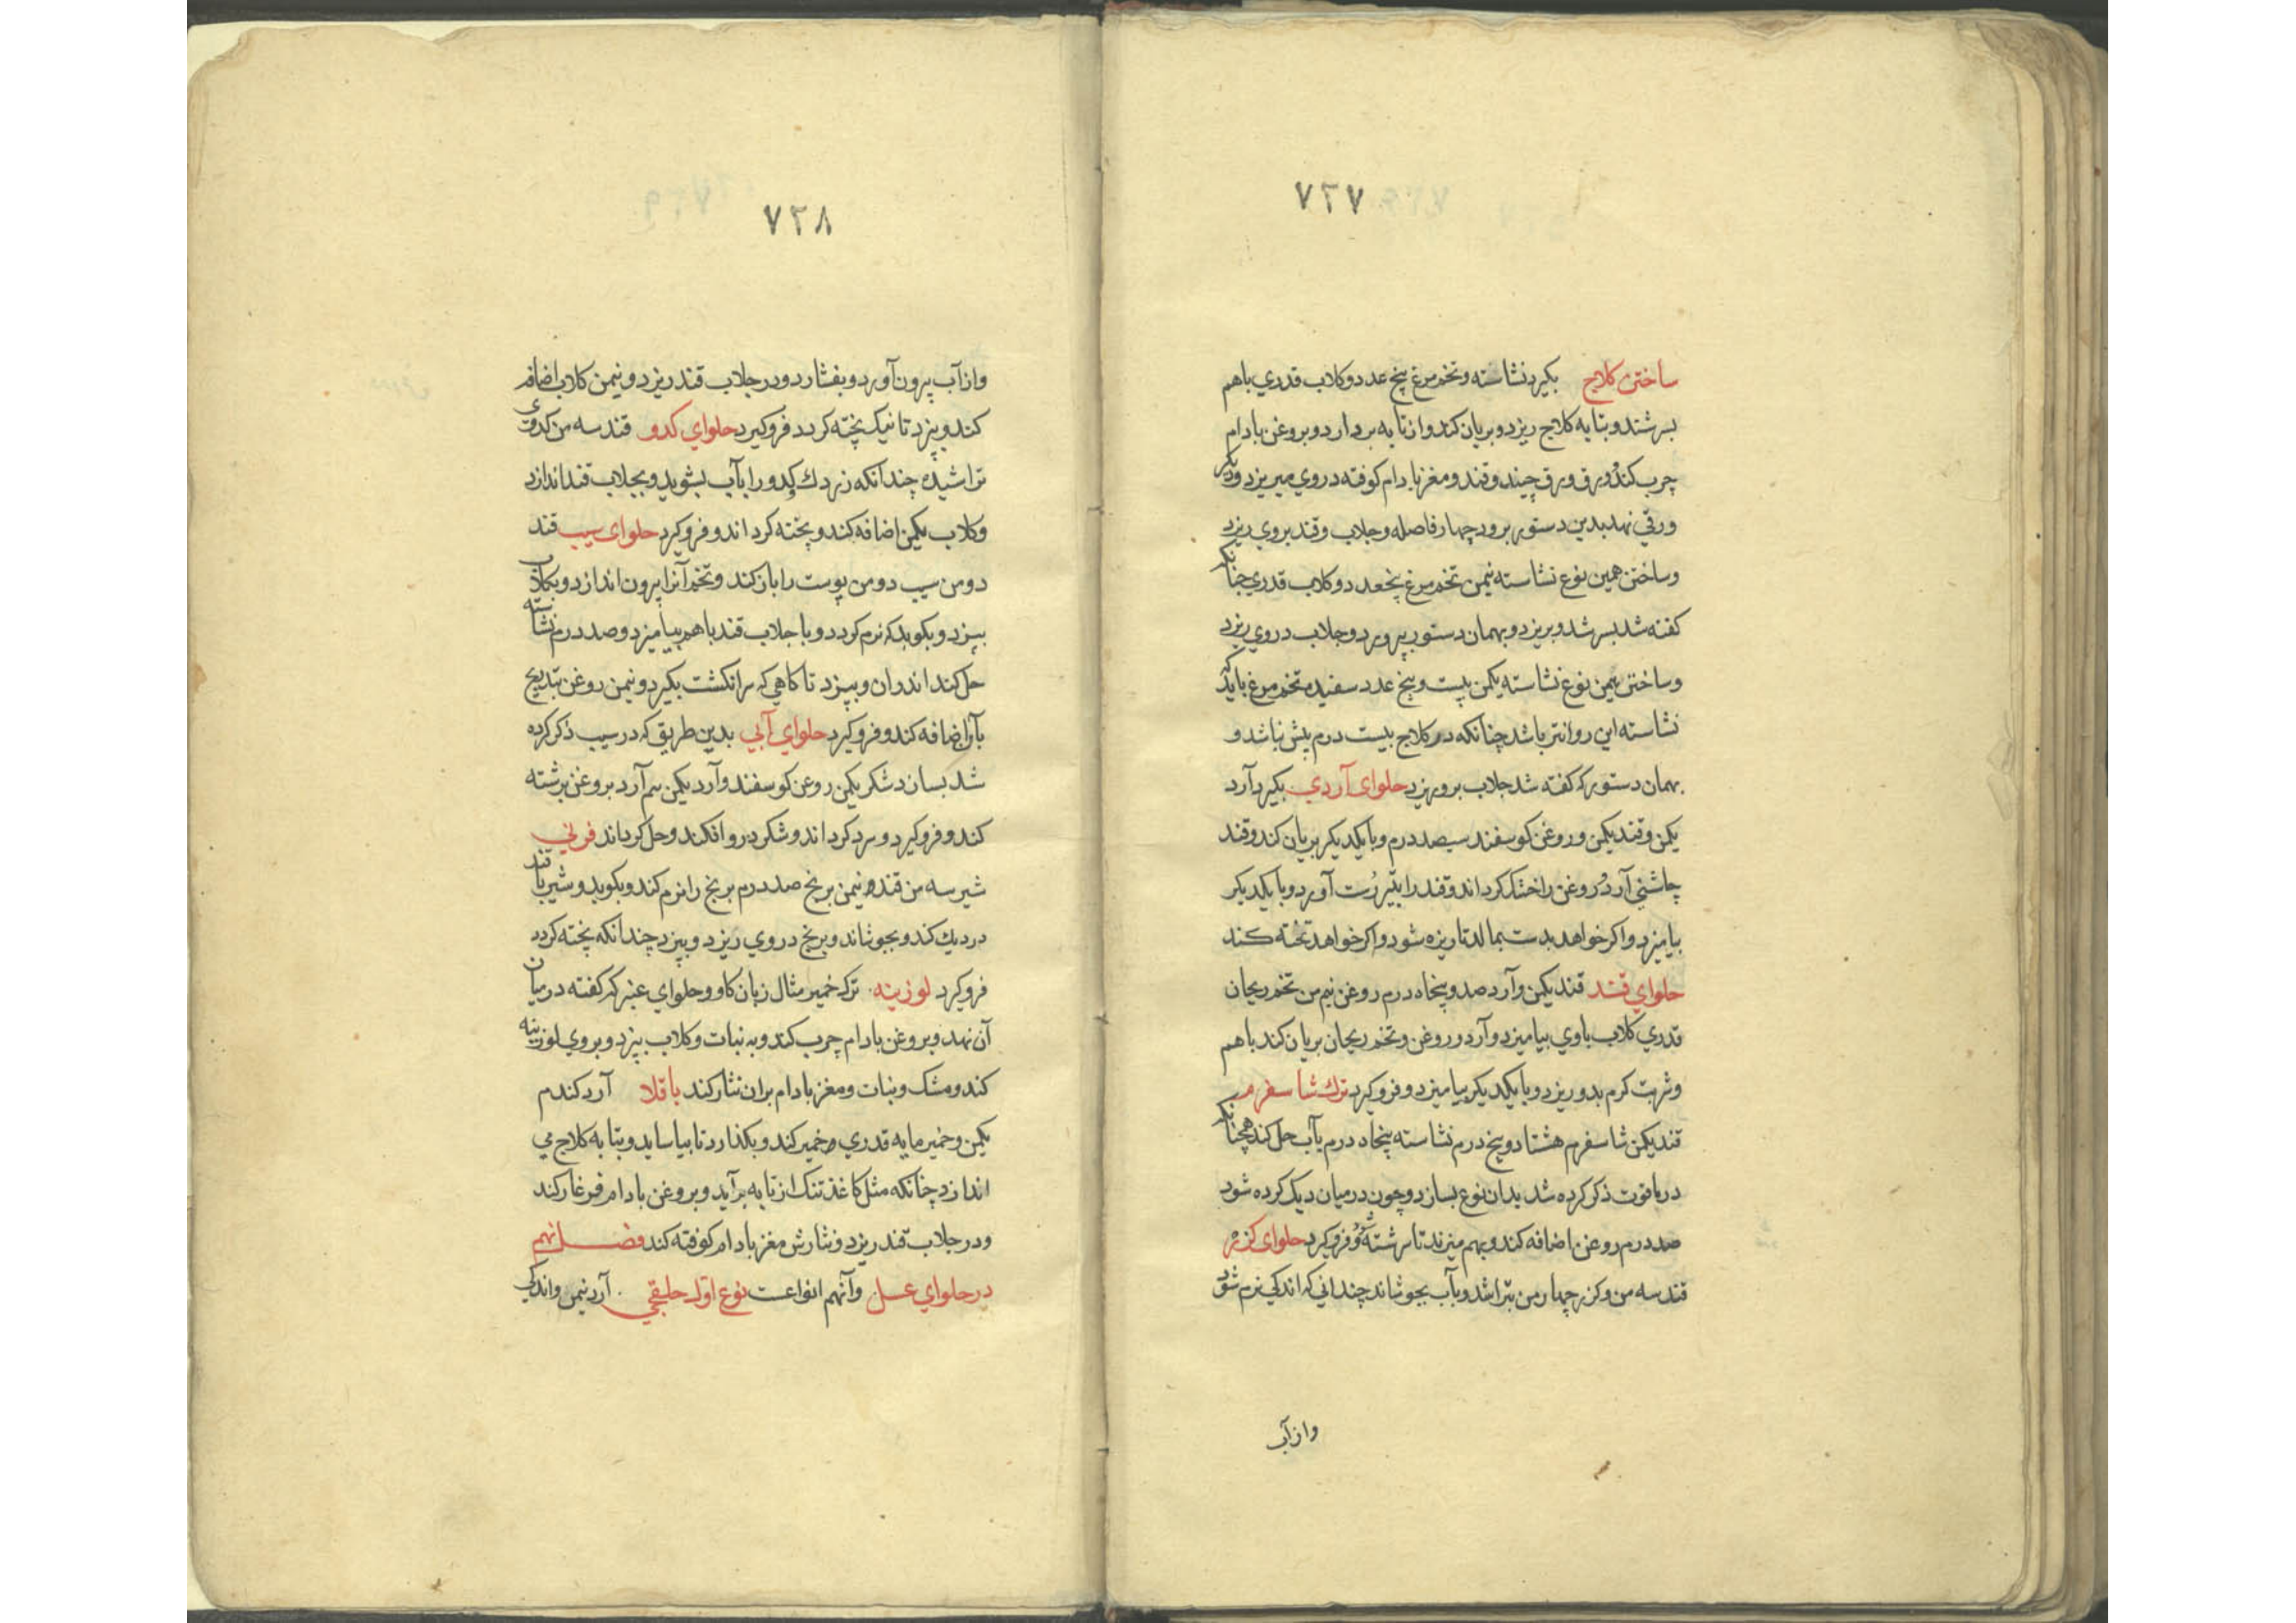 ۷۲۷
ساختن کلاج بکیرد نشاسته و تخم مرغ پنج عدد و کلاب قدری باهم
بسرشند و بتابه کلاج ریزد و بریان کند و از تابه بردارد و بروغن بادام
چرب کند و ورق ورق چیند و قند و مغز بادام کوفته در روی میریزد و دیکر
ورقی نهد بدین دستور برود چهار فاصله و جلاب و قند بروی ریزد
و ساختن همین نوع نشاسته نیمن تخم مرغ پنجعدد و کلاب قدری چنانکه
کفته شد بسرشد و بریزد و بهمان دستور بپرورد و جلاب در روی ریزد
و ساختن نیمن نوع نشاسته یکمن بیست و پنج عدد سفیده تخم مرغ باید که
نشاسته این روانتر باشد چنانکه در کلاج بیست درم بیش نباشد و
بهمان دستور که کفته شد جلاب برو ریزد حلوای آردی بکیرد آرد
یکمن و قند یکمن و روغن کوسفند سیصد درم و بایکدیکر بریان کند و قند
چاشنی آرد و روغن را خشک کرداند و قند را آورد و بایکدیکر
بیامیزد و اکر خواهد بدست بمالد تا ریزه شود و اکر خواهد تخته کند
حلوای قند قند یکمن و آرد صد و پنجاه درم روغن نیم من تخم ریحان
قدری کلاب باوی بیامیزد و آرد و روغن و تخم ریحان بریان کند باهم
و شربت کرم بدو ریزد و بایکدیکر بیامیزد و فروکیرد ترک شاسفرم
قند یکمن شاسفرم هشتاد و پنج درم نشاسته پنجاه درم بآب حل کند همچنانکه
در یاقوت ذکر کرده شد بدان نوع بسازد و چون در میان دیک کرده شود
صد درم روغن اضافه کند و بهم میزند تا سرشته و فروکیرد حلوای کزر
قند سه من و کزر چهار من بتراشد و بآب بجوشاند چندانی که اندکی نرم شود
واز آب
۷۲۸
و از آب بیرون آورد و بفشارد و در جلاب قند ریزد و نیمن کلاب اضافه
کند و بپزد تا نیک پخته کردد فروکیرد حلوای کدو قند سه من کدوی
تراشیده چندانکه زردک کدو را بآب بشوید و بجلاب قند اندازد
و کلاب یکمن اضافه کند و پخته کرداند و فروکیرد حلوای سیب قند
دو من سیب دو من پوست را باز کند و تخم آنرا بیرون اندازد و بکلاب
بپزد و بکوبد که نرم کردد و با جلاب قند باهم بیامیزد و صد درم نشاسته
حل کند اندران و بپزد تا کاهی که سر انکشت بکیرد و نیمن روغن بتدریج
باو اضافه کند و فروکیرد حلوای آبی بدین طریق که در سیب ذکر کرده
شد بسازد شکر یکمن روغن کوسفند و آرد یکمن نیم آرد بروغن برشته
کند و فروکیرد و سرد کرداند و شکر درو افکند و حل کرداند فرنی
شیر سه من قند و نیمن برنج صد درم برنج را نرم کند و بکوبد و شیر با قند
در دیک کند و بجوشاند و برنج در وی ریزد و بپزد چندانکه پخته کردد
فروکیرد لوزینه ترک خمیر مثال زبان کاو و حلوای عنبر که کفته در میان
آن نهد و بروغن بادام چرب کند و به نبات و کلاب بپزد و بروی لوزینه
کند و مشک و نبات و مغز بادام بران نثار کند باقلا آرد کندم
یکمن و خمیرمایه قدری و خمیر کند و بکذارد تا بیاساید و بتابه کلاج می
اندازد چنانکه مثل کاغذ تنک از تابه برآید و بروغن بادام فرغار کند
و در جلاب قند ریزد و نثارش مغز بادام کوفته کند فصل نهم
در حلوای عسل و آنهم انواعست نوع اول حلیقی آرد نیمن و اندکی